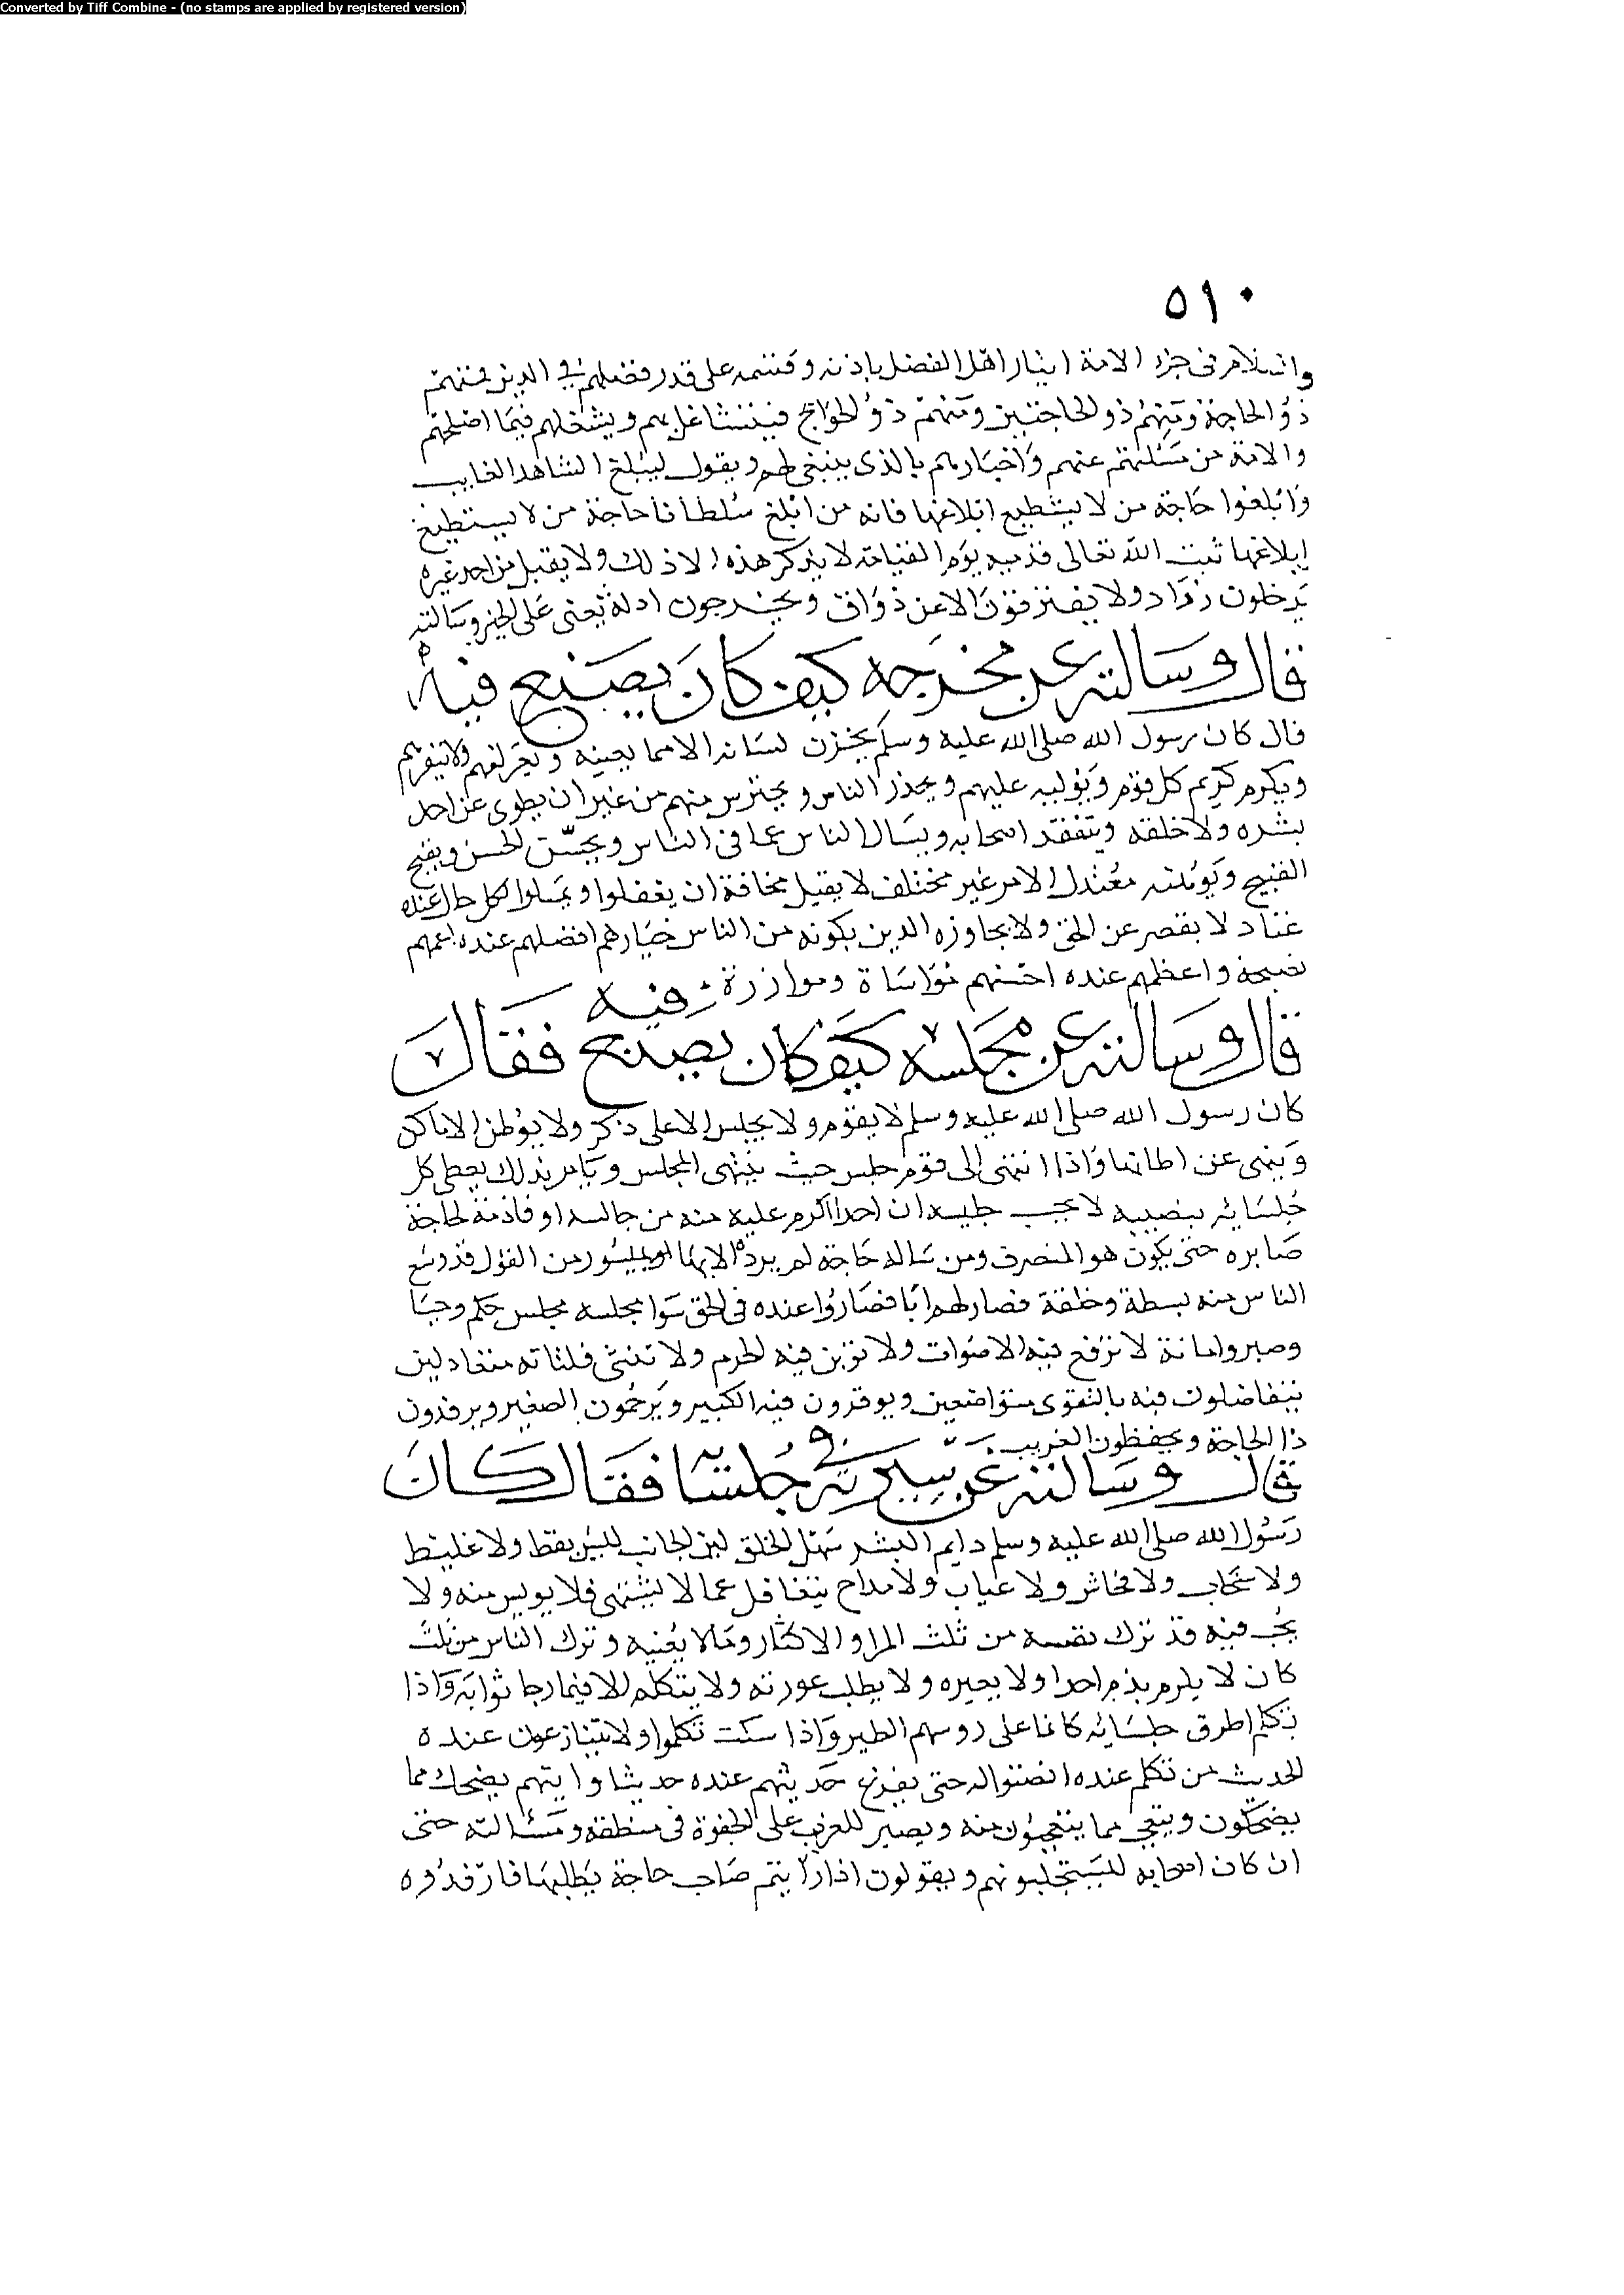 Converted by Tiff Combine - (no stamps are applied by registered version)
٥١٠
وانه لام فى جزء الامة ايثار اهل الفضل باذنه وقسمه على قدر فضلهم فى الدين فمنهم
ذو الحاجة ومنهم ذو الحاجتين ومنهم ذو الحوائج فيتشاغل بهم ويشغلهم فيما اصلحهم
والامة من مسئلتهم عنهم واخبارهم بالذى ينبغى لهم ويقول ليبلغ الشاهد الغايب
وابلغوا حاجة من لا يستطيع ابلاغها فانه من ابلغ سلطانا حاجة من لا يستطيع
ابلاغها ثبت الله تعالى قدميه يوم القيامة لا يذكر هذه الا ذلك ولا يقبل من احد غيره
يدخلون رواد ولا يفترقون الا عن ذواق ويخرجون ادلة يعنى على الخير وسالته
قال وسالته عن مخرجه كيف كان يصنع فيه
قال كان رسول الله صلى الله عليه وسلم يخزن لسانه الا مما يعينه ويؤلفهم ولا ينفرهم
ويكرم كريم كل قوم ويوليه عليهم ويحذر الناس ويحترس منهم من غير ان يطوى عن احد
بشره ولا خلقه ويتفقد اصحابه ويسال الناس عما فى الناس ويحسن الحسن ويقبح
القبيح ويوهنه معتدل الامر غير مختلف لا يقبل مخافة ان يغفلوا ويميلوا لكل حال عنده
عتاد لا يقصر عن الحق ولا يجاوزه الدين يكونه من الناس خيارهم افضلهم عنده اعمهم
نصيحة واعظمهم عنده احسنهم مواساة وموازرة
قال وسالته عن مجلسه كيف كان يصنع فيه فقال
كان رسول الله صلى الله عليه وسلم لا يقوم ولا يجلس الا على ذكر ولا يوطن الاماكن
وينهى عن اطانها واذا انتهى الى قوم جلس حيث ينتهى المجلس ويامر بذلك يعطى كل
جلسائه بنصيبه لا يحسب جليسه ان احدا اكرم عليه منه من جالسه او فاوضه لحاجة
صابره حتى يكون هو المنصرف ومن ساله حاجة لم يرده الا بها او بميسور من القول قد وسع
الناس منه بسطة وخلقة فصار لهم ابا فصاروا عنده فى الحق سوا مجلسه مجلس حكم وحيا
وصبر وامانة لا ترفع فيه الاصوات ولا تؤبن فيه الحرم ولا تنثى فلتاته متعادلين
يتفاضلون فيه بالتقوى متواضعين ويوقرون فيه الكبير ويرحمون الصغير ويرفدون
ذا الحاجة ويحفظون الغريب
قال وسالته عن سيرته فى جلسائه فقال كان
رسول الله صلى الله عليه وسلم دايم البشر سهل الخلق لين الجانب ليس بفظ ولا غليظ
ولا سخاب ولا فحاش ولا عياب ولا مداح يتغافل عما لا يشتهى فلا يويس منه ولا
يحب فيه قد ترك نفسه من ثلث المرا والاكثار ومالا يعنيه وترك الناس من ثلث
كان لا يلزم بذم احدا ولا يعيره ولا يطلب عورته ولا يتكلم الا فيما رجا ثوابه واذا
تكلم اطرق جلسائه كانما على روسهم الطير واذا سكت تكلموا ولا يتنازعون عنده
الحديث من تكلم عنده انصتوا له حتى يفزغ حديثهم عنده حديث اوليتهم يضحك مما
يضحكون ويتعجب مما يتعجبون منه ويصبر للغريب على الجفوة فى منطقه ومسالته حتى
ان كان اصحابه ليستجلبونهم ويقولون اذا رايتم صاحب حاجة يطلبها فارفدوه